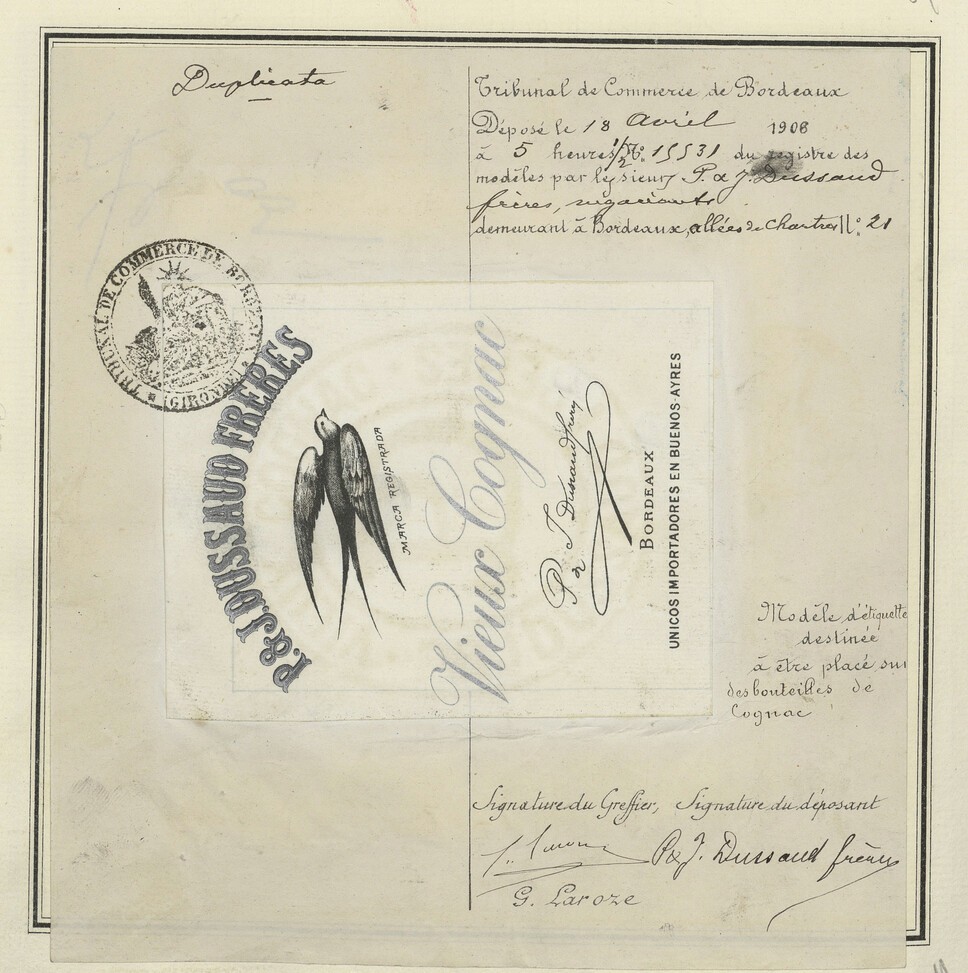 Duplicata
Tribunal de Commerce de Bordeaux
Déposé le 18 Avril 1908
à 5 heures 1/2 No. 15531 du registre des
modèles par les sieurs P. & J. Dussaud
frères, négociants
demeurant à Bordeaux, allées de Chartres No. 21
TRIBUNAL DE COMMERCE DE BORDEAUX
(GIRONDE)
P. & J. DUSSAUD FRERES
MARCA REGISTRADA
Vieux Cognac
P & J Dussaud frères
BORDEAUX
UNICOS IMPORTADORES EN BUENOS-AYRES
Modèle d'étiquette
destinée
à etre placé sur
des bouteilles de
Cognac
Signature du Greffier, Signature du déposant
P & J. Dussaud frères
G. Laroze